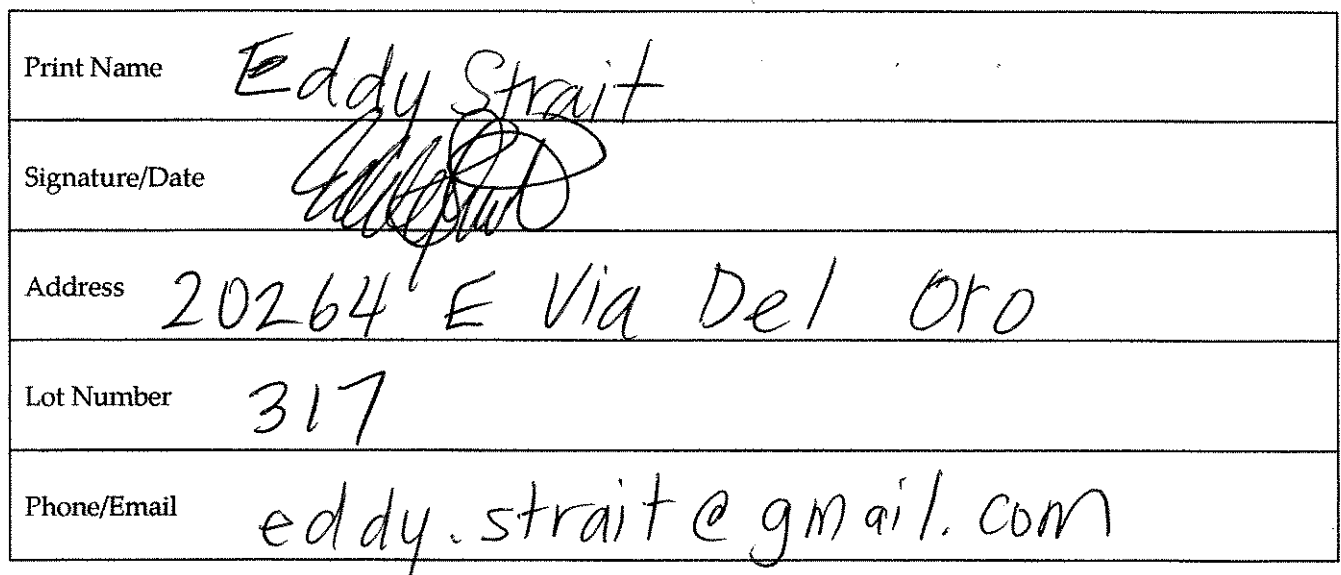 Print Name Eddy Strait
Signature/Date
Address 20264 E Via Del Oro
Lot Number 317
Phone/Email eddy.strait@gmail.com